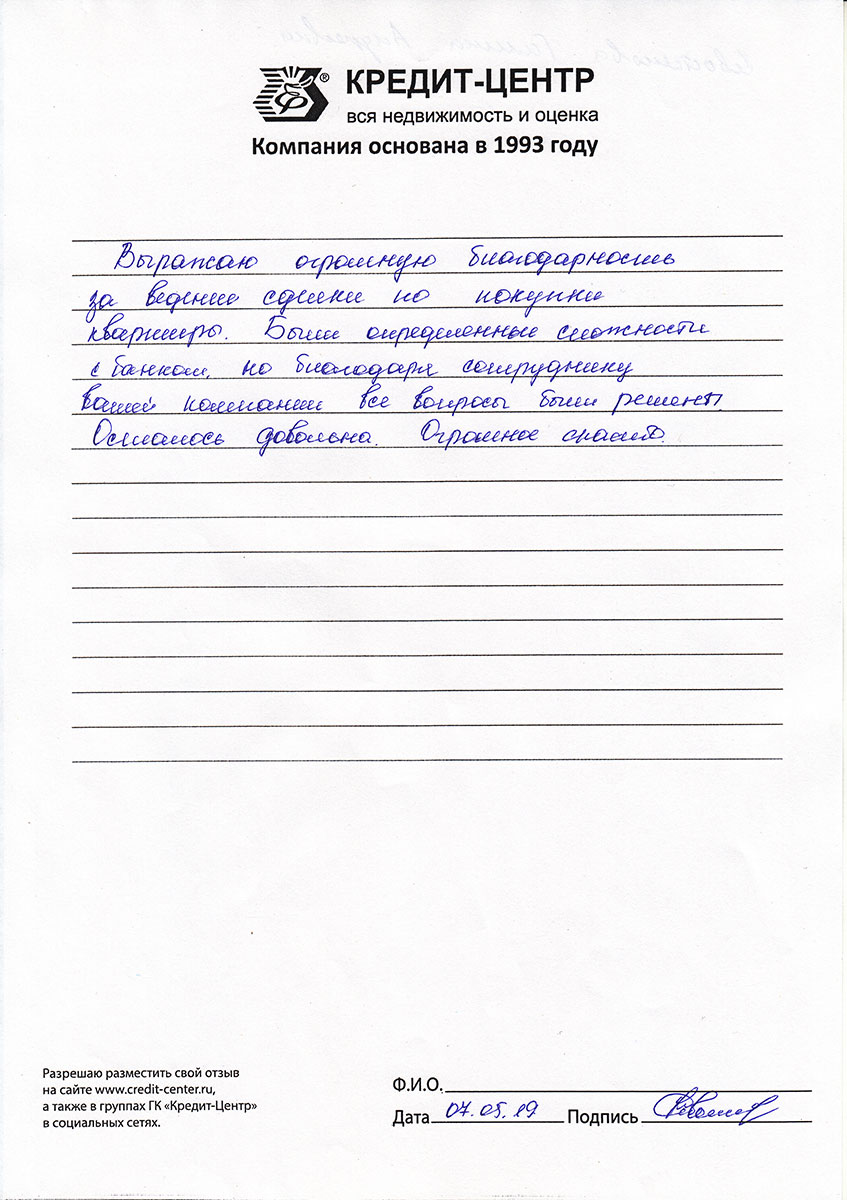 КРЕДИТ-ЦЕНТР
вся недвижимость и оценка
Компания основана в 1993 году
Выражаю огромную благодарность
за ведение сделки по покупки
квартиры. Были определенные сложности
с банком, но благодаря сотруднику
вашей компании все вопросы были решены.
Осталась довольна. Огромное спасибо.
Разрешаю разместить свой отзыв
на сайте www.credit-center.ru,
а также в группах ГК «Кредит-Центр»
в социальных сетях.
Ф.И.О.
Дата 07.05.19 Подпись